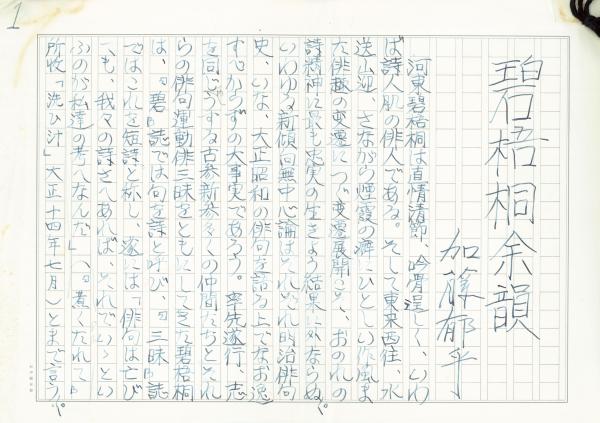 1
碧梧桐余韻
加藤郁乎
河東碧梧桐は直情清節、吟骨逞しく、いわ
ば詩人肌の俳人である。そして東奔西往、水
送山迎、さながら煙霞の癖にひとしい作風ま
た俳趣の変遷につぐ変遷展開こそ、おのれの
詩精神に最も忠実の生きよう結果に外ならぬ。
いわゆる新傾向無中心論はそれぞれ明治俳句
史、いな、大正昭和の俳句を語る上でなお逸
すべからずの大事実であろう。率先遂行、志
を同じうする古参新参多くの仲間たちとそれ
らの俳句運動俳三昧をともにしてきた碧梧桐
は、『碧』誌では句を詩と呼び、『三昧』誌
ではこれを短詩と称し、遂には「俳句は亡び
ても、我々の詩さへあれば、それでいゝとい
ふのが私達の考へなんだ」（『煮くたれて』
所收「洗ひ汁」大正十四年七月）とまで言う。